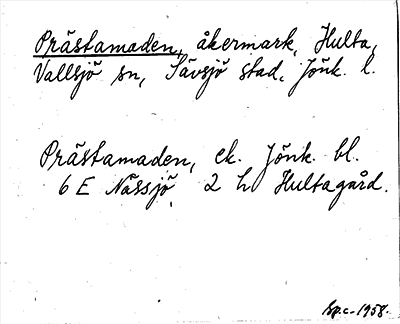 Prästamaden, åkermark, Hulta,
Vallsjö sn, Sävsjö stad, Jönk. l.
Prästamaden, ek. Jönk. bl.
6 E Nässjö 2 h Hultagård.
Sp.c. 1958.